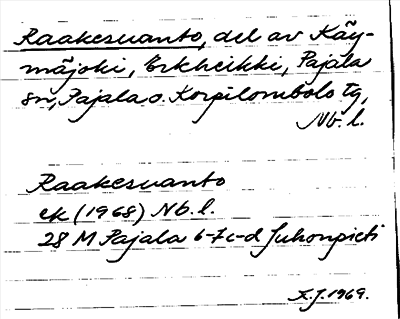 Raakesuanto, del av Käy-
mäjoki, Erkheikki, Pajala
sn, Pajala o. Korpilombolo tg,
Nb. l.
Raakesuanto
ek (1968) Nb. l.
28 M Pajala 6-7 c-d Juhonpieti
F.J. 1969.